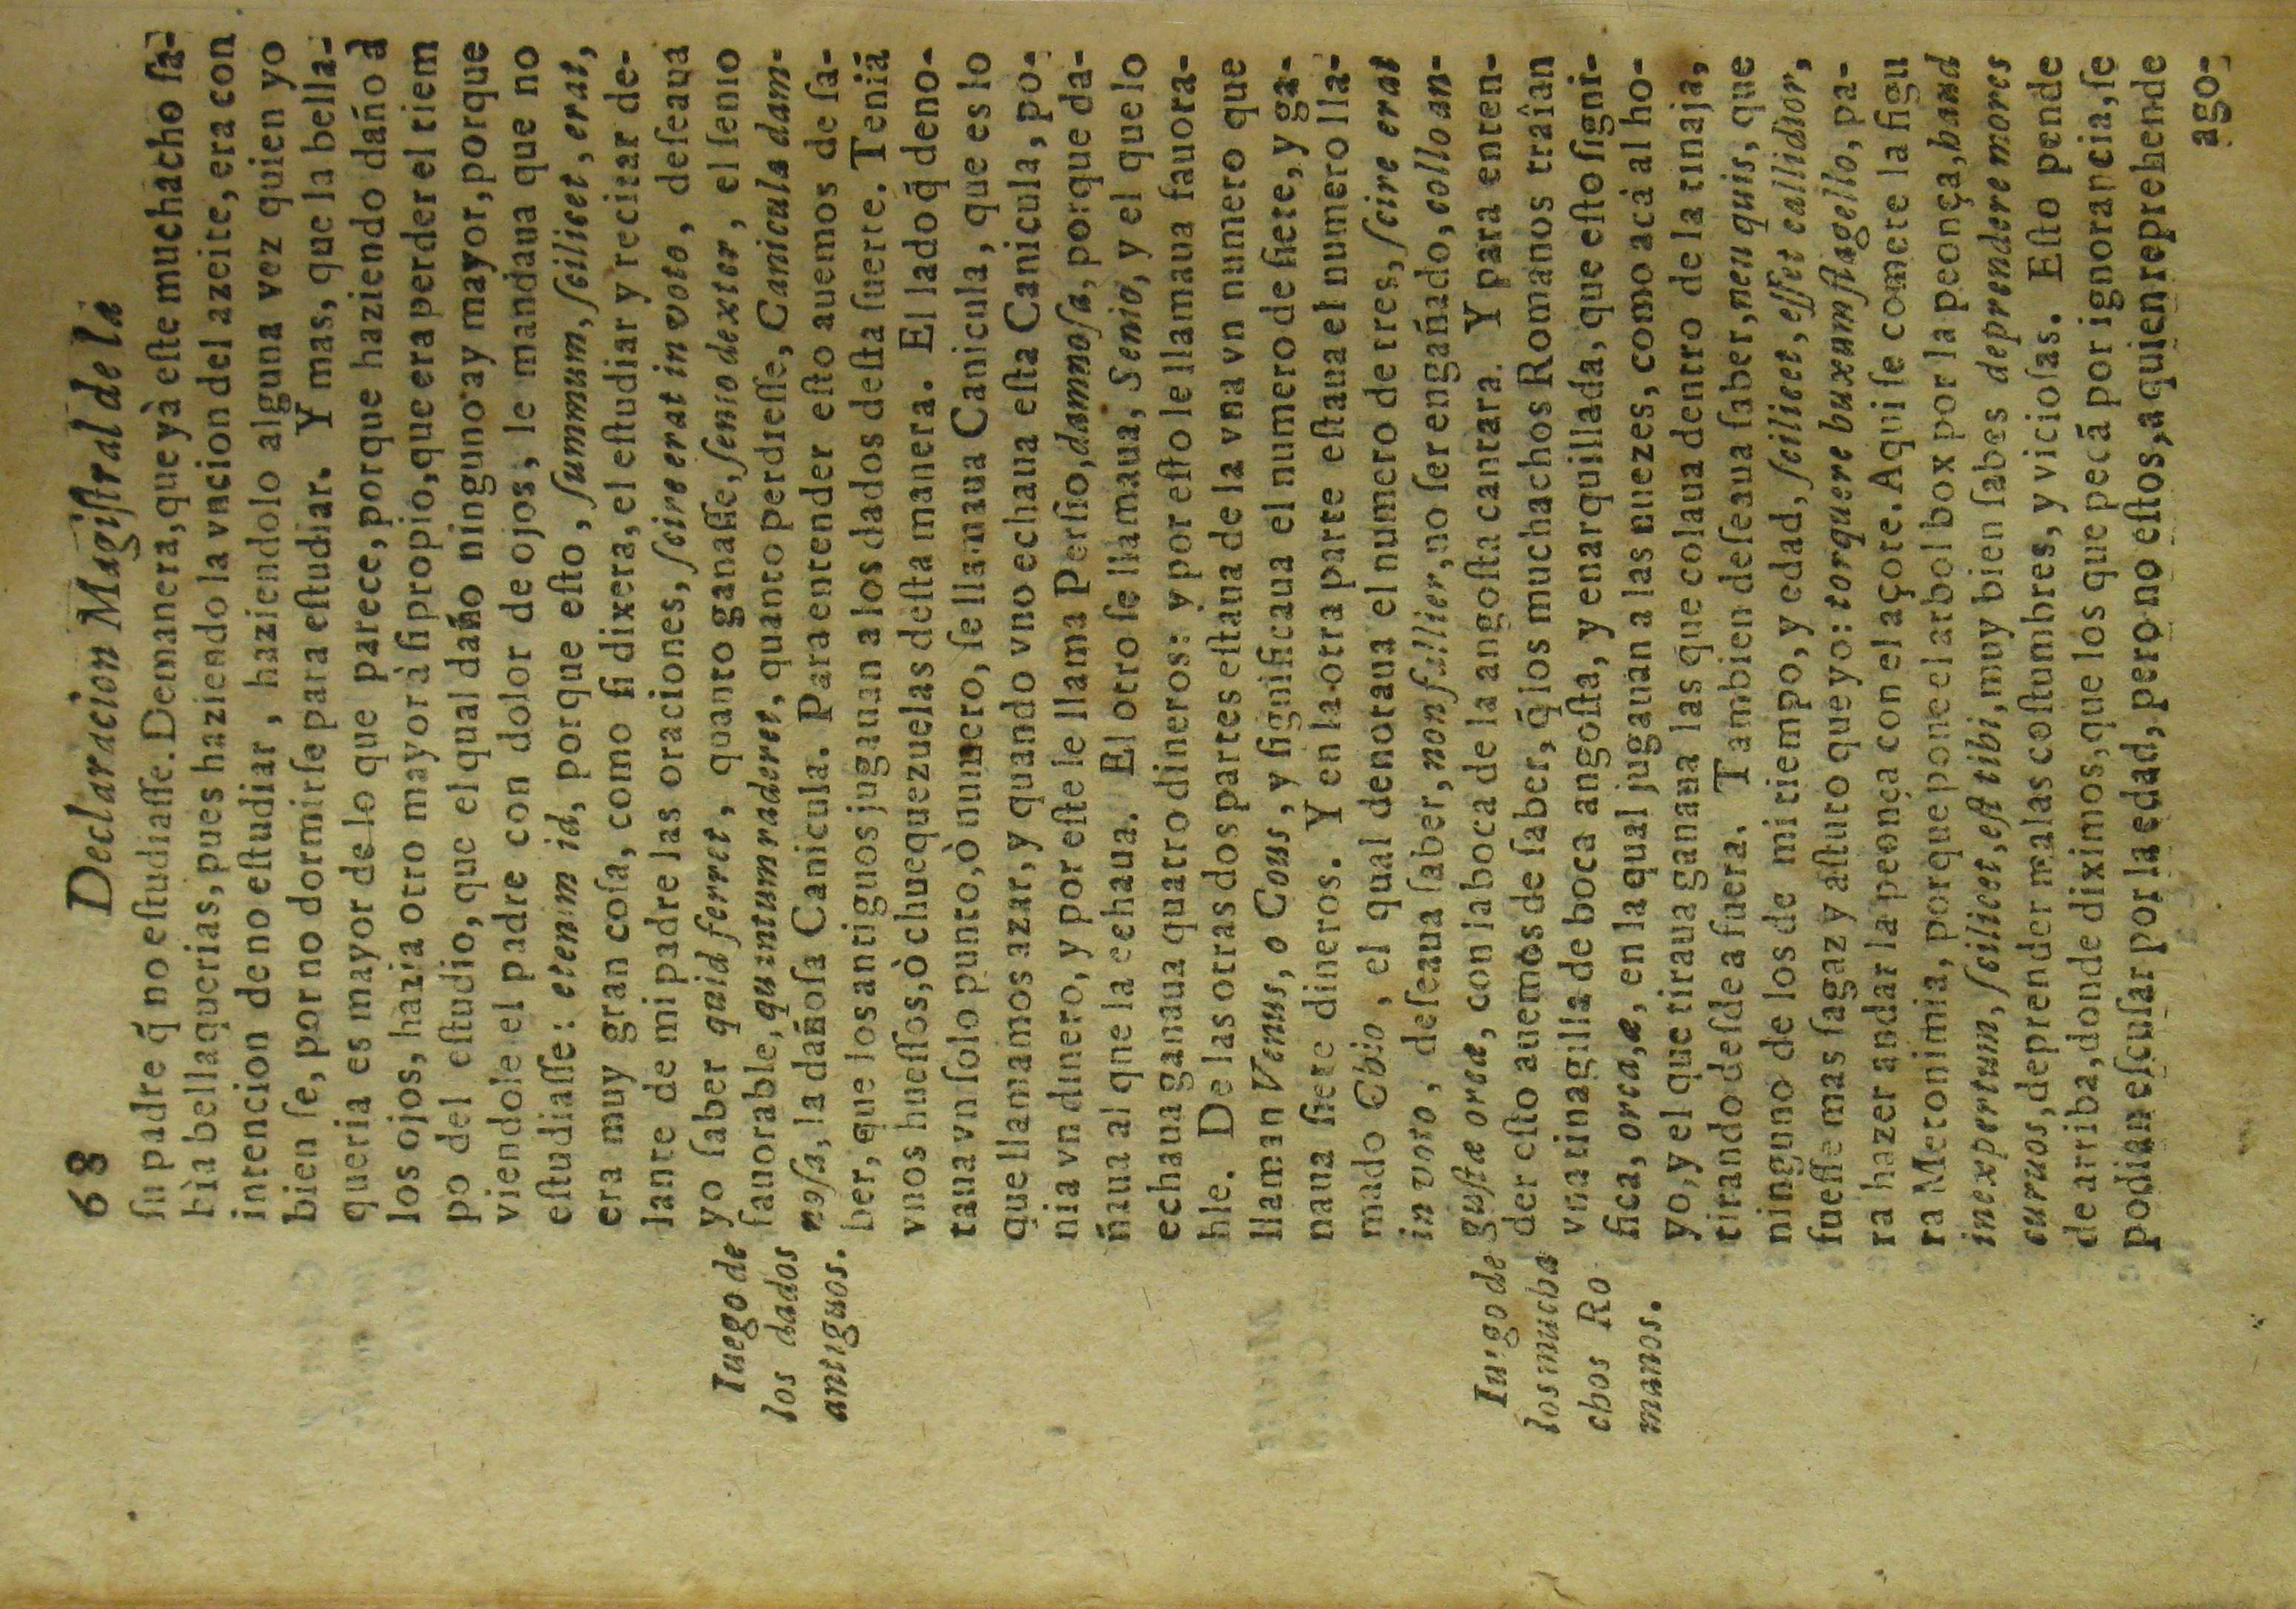 68 Declaracion Magiſtral de la
ſu padre q̃ no eſtudiaſſe. De manera, que yà eſte muchacho ſa-
bìa bellaquerias, pues haziendo la vncion del azeite, era con
intencion de no eſtudiar, haziendolo alguna vez quien yo
bien ſe, por no dormirſe para eſtudiar. Y mas, que la bella-
queria es mayor de lo que parece, porque haziendo daño à
los ojos, hazia otro mayor à ſi propio, que era perder el tiem
po del eſtudio, que el qual daño ninguno ay mayor, porque
viendole el padre con dolor de ojos, le mandaua que no
eſtudiaſſe: etenim id, porque eſto, ſummum, ſcilicet, erat,
era muy gran coſa, como ſi dixera, el eſtudiar y recitar de-
lante de mi padre las oraciones, ſcire erat in voto, deſeaua
yo ſaber quid ferret, quanto ganaſſe, ſenio dexter, el ſenio
fauorable, quantum raderet, quanto perdieſſe, Canicula dam-
noſa, la dañoſa Canicula. Para entender eſto auemos de ſa-
ber, que los antiguos jugauan a los dados deſta ſuerte. Teniã
vnos hueſſos, ò chuequezuelas deſta manera. El lado q̃ deno-
taua vn ſolo punto, ò numero, ſe llamaua Canicula, que es lo
que llamamos azar, y quando vno echaua eſta Canicula, po-
nia vn dinero, y por eſte le llama Perſio, damnoſa, porque da-
ñaua al que la echaua. El otro ſe llamaua, Senio, y el que lo
echaua ganaua quatro dineros: y por eſto le llamaua fauora-
ble. De las otras dos partes eſtaua de la vna vn numero que
llaman Venus, o Cous, y ſignificaua el numero de ſiete, y ga-
naua ſiete dineros. Y en la otra parte eſtaua el numero lla-
mado Chio, el qual denotaua el numero de tres, ſcire erat
in voto, deſeaua ſaber, non fallier, no ſer engañado, collo an-
guſtæ orcæ, con la boca de la angoſta cantara. Y para enten-
der eſto auemos de ſaber, q̃ los muchachos Romanos traîan
vna tinagilla de boca angoſta, y enarquillada, que eſto ſigni-
fica, orca, æ, en la qual jugauan a las nuezes, como acá al ho-
yo, y el que tiraua ganaua las que colaua dentro de la tinaja,
tirando deſde a fuera. Tambien deſeaua ſaber, neu quis, que
ninguno de los de mi tiempo, y edad, ſcilicet, eſſet callidior,
fueſſe mas ſagaz y aſtuto que yo: torquere buxum flagello, pa-
ra hazer andar la peonça con el açote. Aqui ſe comete la figu
ra Metonimia, porque pone el arbol box por la peonça, haud
inexpertum, ſcilicet, eſt tibi, muy bien ſabes deprendere mores
curuos, deprender malas coſtumbres, y vicioſas. Eſto pende
de arriba, donde diximos, que los que pecã por ignorancia, ſe
podian eſcuſar por la edad, pero no eſtos, a quien reprehende
ago-
Iuego de
los dados
antiguos.
Iuego de
los mucha
chos Ro
manos.